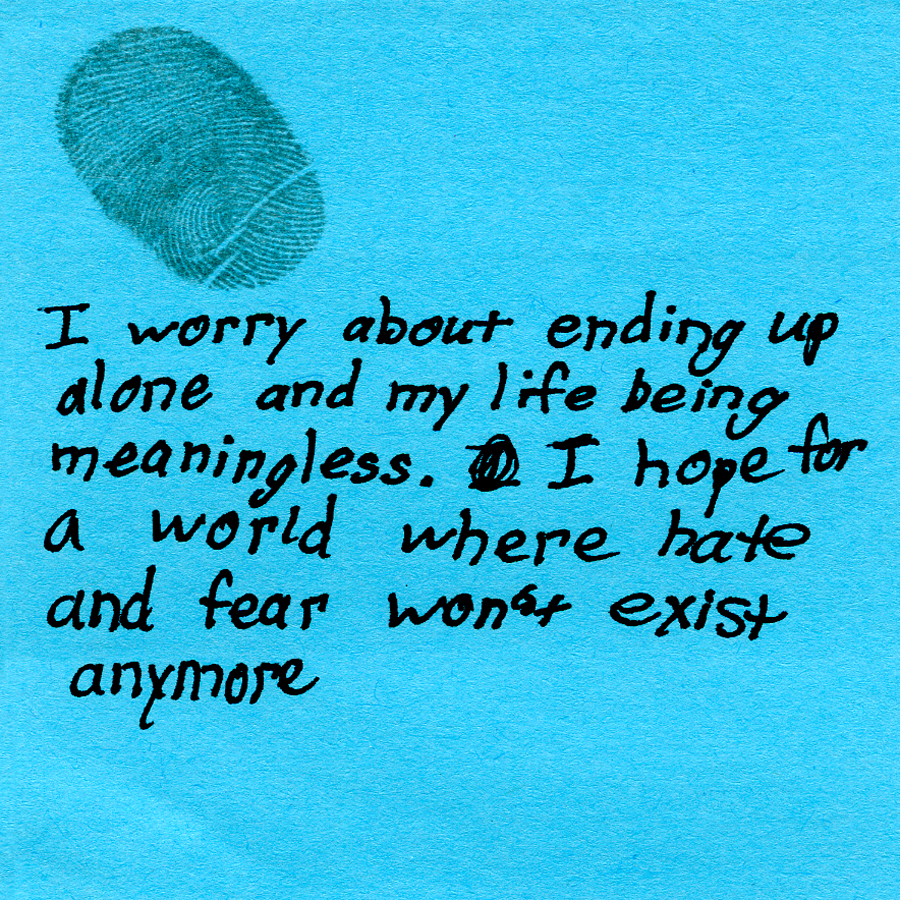 I worry about ending up
alone and my life being
meaningless. I hope for
a world where hate
and fear won't exist
anymore